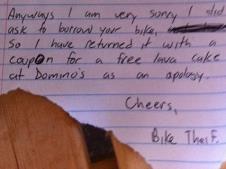 Anyways I am very sorry I did
ask to borrow your bike,
So I have returned it with a
coupon for a free lava cake
at Domino's as an apology.
Cheers,
Bike Thief.